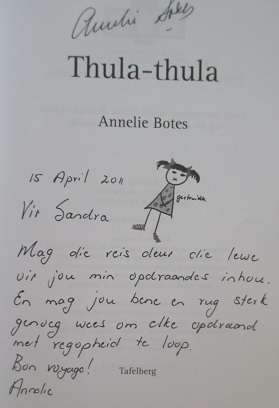 Annelie Botes
Thula-thula
Annelie Botes
15 April 2011
Vir Sandra
Gertruida
Mag die reis deur die lewe
vir jou min opdraandes inhou.
En mag jou bene en rug sterk
genoeg wees om elke opdraand
met regopheid te loop.
Bon voyage!
Tafelberg
Annelie